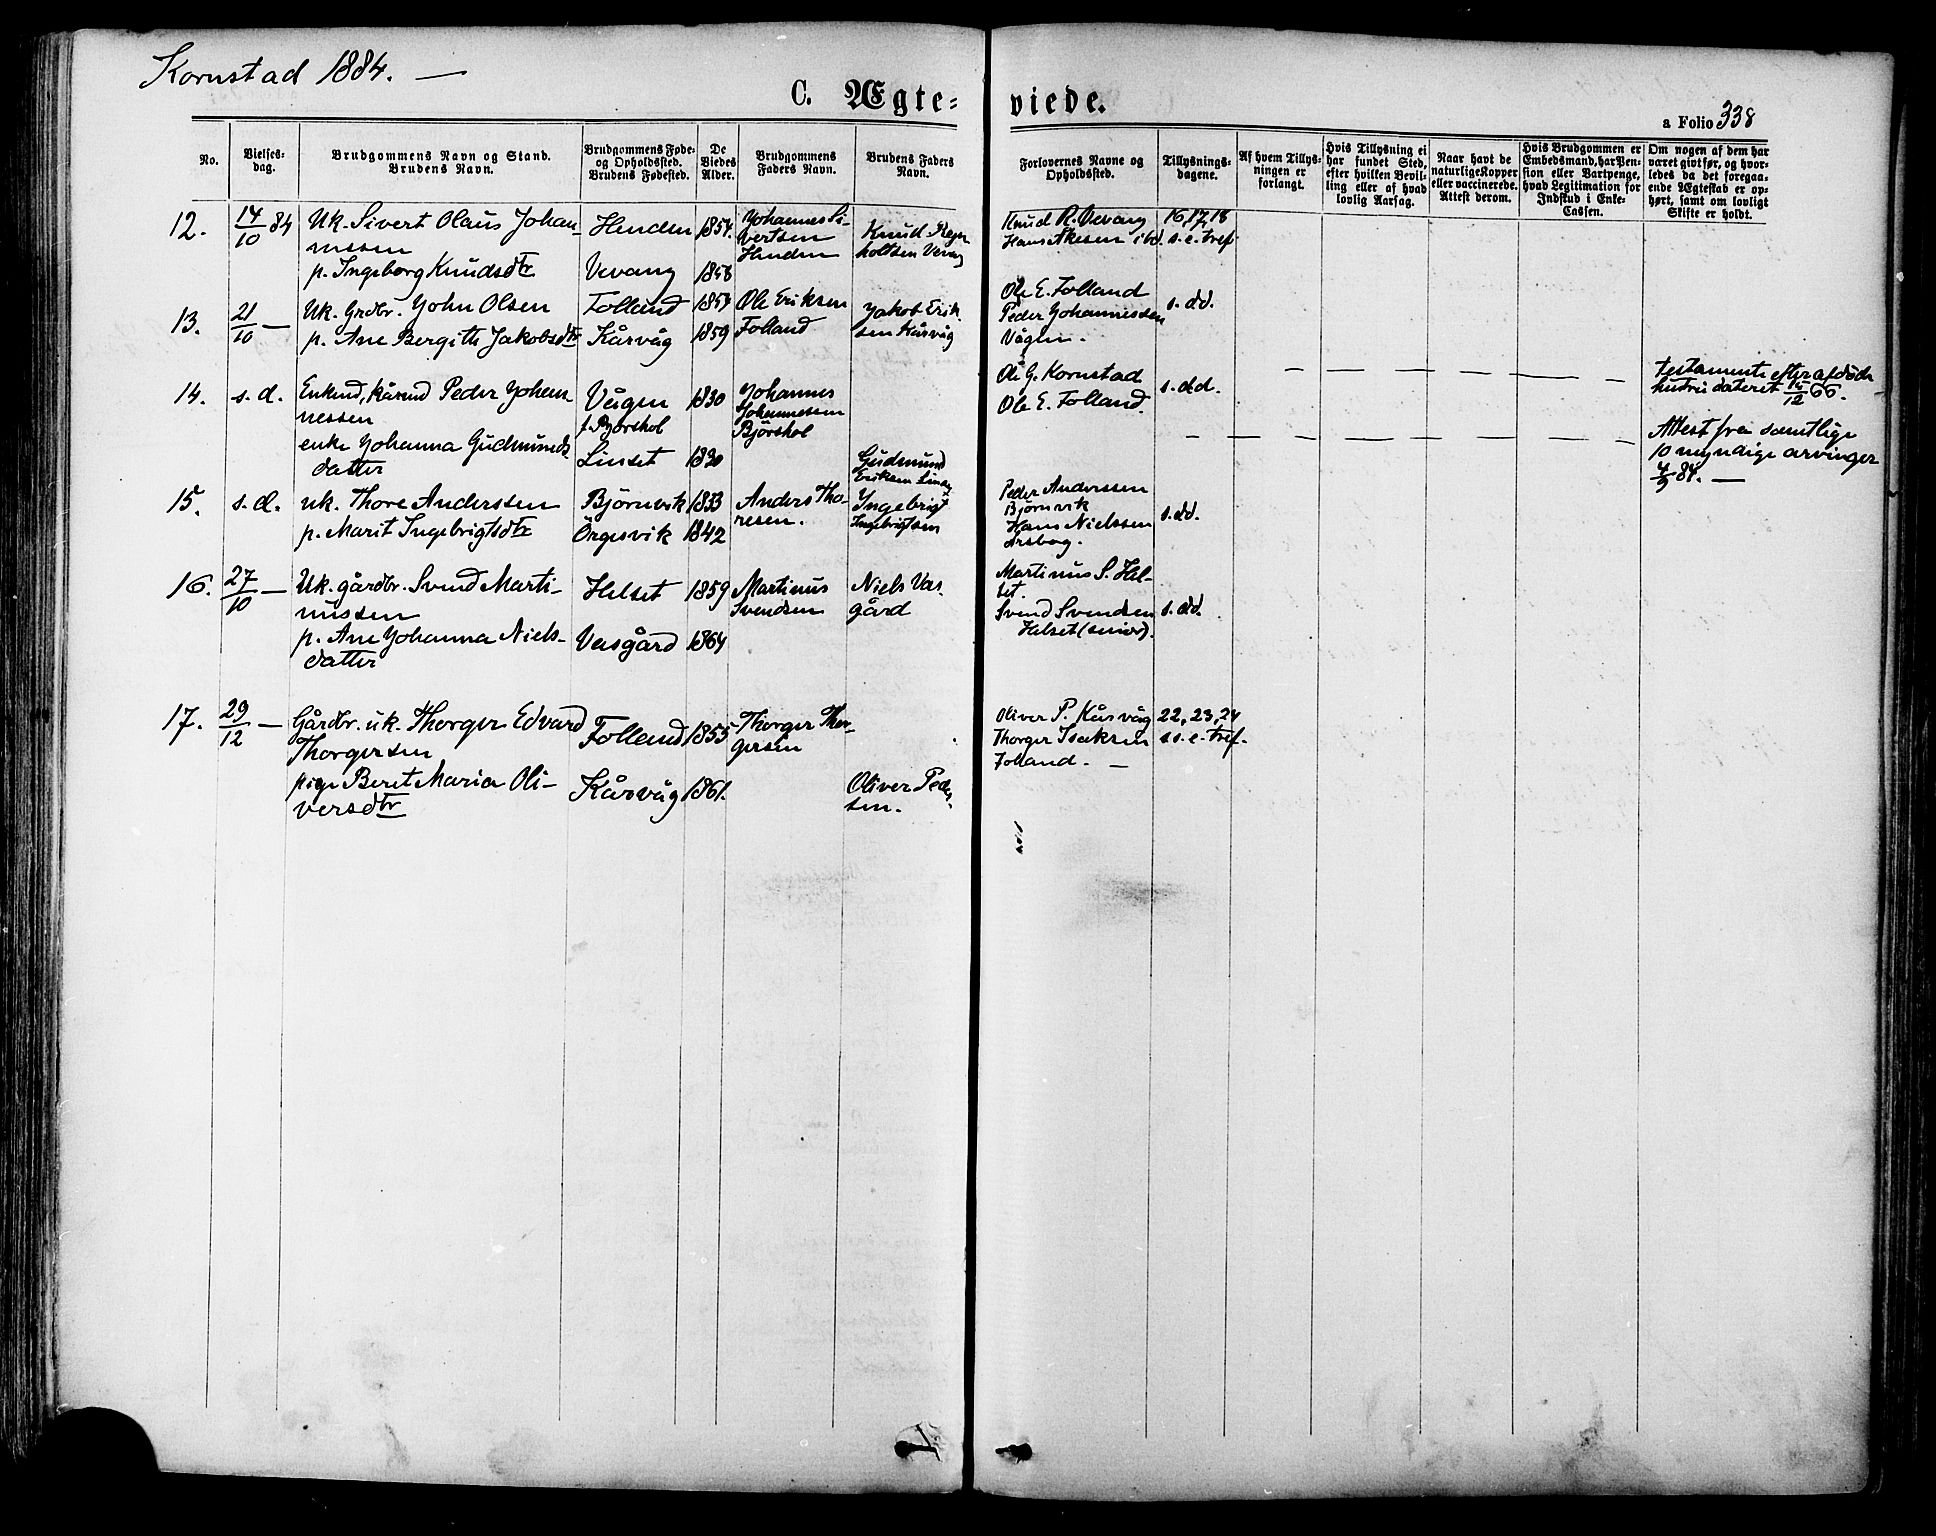 Kornstad 1884. —
C. Ægte=
viede.
a Folio 338
No.
Vielses=
dag.
Brudgommens Navn og Stand.
Brudens Navn.
Brudgommens Føde=
og Opholdssted.
Brudens Fødested.
De
Viedes
Alder.
Brudgommens
Faders Navn.
Brudens Faders
Navn.
Forlovernes Navne og
Opholdssted.
Tillysnings=
dagene.
Af hvem Tillys=
ningen er
forlangt.
Hvis Tillysning ei
har fundet Sted,
efter hvilken Bevil=
ling eller af hvad
lovlig Aarsag.
Naar havt de
naturlige Kopper
eller vaccinerede.
Attest derom.
Hvis Brudgommen er
Embedsmand, har Pen=
sion eller Vartpenge,
hvad Legitimation for
Indskud i Enke=
Cassen.
Om nogen af dem har
været givt før, og hvor=
ledes da det foregaa=
ende Ægteskab er op=
hørt, samt om lovligt
Skifte er holdt.
12. 14/10 84
Uk. Sivert Olaus Johan-
nessen
p. Ingeborg Knudsdtr
Henden
Vevang
1854.
1858
Johannes Si-
vertsen
Henden
Knud Regn
holtsen Vevang
Knud R. Vevang
Hans Akesen ibd.
16, 17, 18
s. e. tref.
13. 21/10 —
Uk. Grdbr. John Olsen
p. Ane Bergitte Jakobsdtr
Folland
Kårvåg
1854
1859
Ole Eriksen
Folland
Jakob Erik-
sen Kårvåg
Ole E. Folland
Peder Johannessen
Vågen.
s. dd.
14. s. d.
Enkmd, kårmd Peder Johan-
nessen
enke Johanna Gudmunds
datter
Vågen
f. Bjørshol
Linset
1830
1820
Johannes
Johannessen
Bjørshol
Gudmund
Eriksen Linset
Ole G. Kornstad
Ole E. Folland.
s. dd.
— — — — —
Testamente efter afdøde
hustru dateret 14/12 66.
— — — — —
Attest fra samtlige
10 myndige arvinger
4/9 84. —
15. s. d.
uk. Thore Anderssen
p. Marit Ingebrigtsdtr
Bjørnvik
Örgesvik
1833
1842
Anders Tho-
resen.
Ingebrigt
Ingebrigtsen
Peder Anderssen
Bjørnvik
Hans Nielssen
Arsbog.
s. dd.
16. 27/10 —
Uk. gårdbr. Svend Marti-
nussen
p. Ane Johanna Niels-
datter
Helset
Vasgård
1859
1864
Martinus
Svendsen
Niels Vas-
gård
Martinus S. Hel-
set.
Svend Svendsen
Helset (senior).
s. dd.
17. 29/12 —
Gårdbr. uk. Thorger Edvard
Thorgersen
pige Beret Maria Oli-
versdtr
Folland
Kårvåg
1855
1861.
Thorger Thor-
gersen
Oliver Peder-
sen.
Oliver P. Kårvåg
Thorger Isaksen
Folland. —
22, 23, 24
s. s. e. tref.